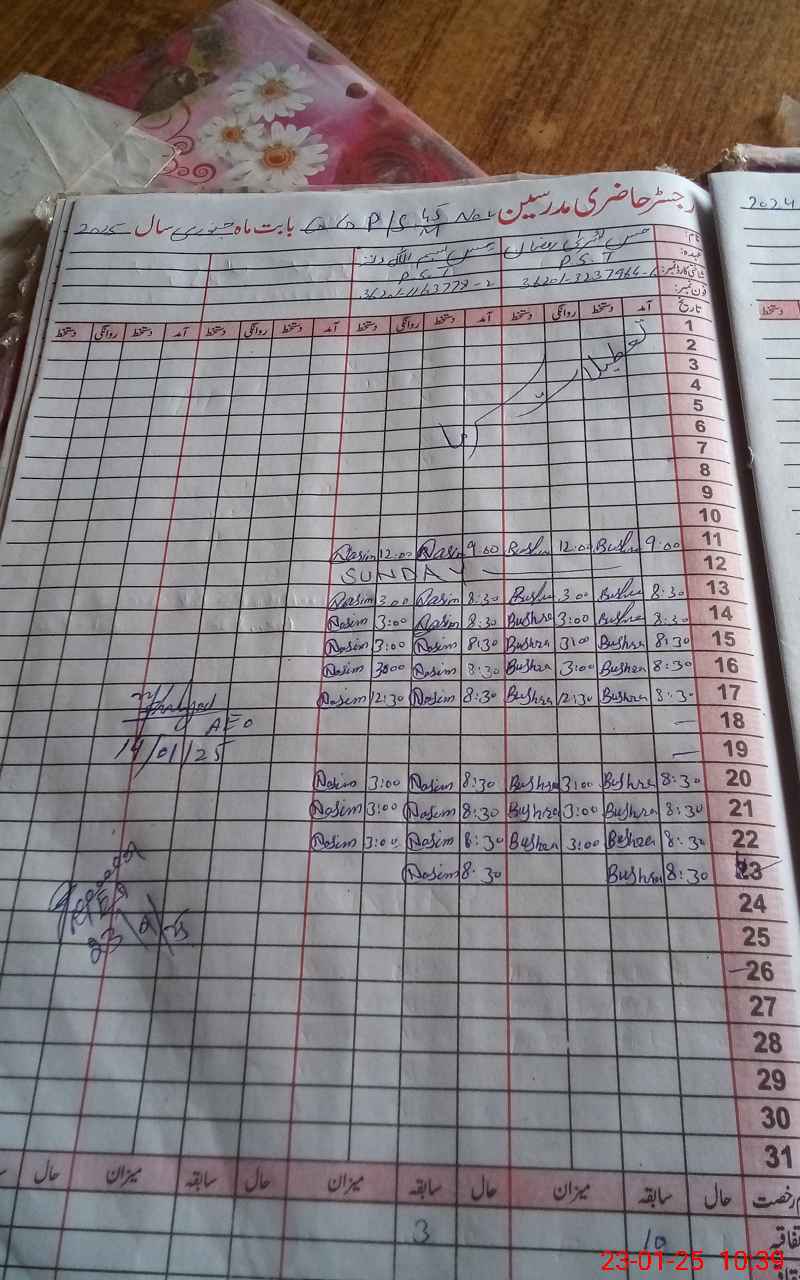 رجسٹر حاضری مدرسین G G P/S 45 M بابت ماہ جنوری سال 2025
2024
نام:
عہدہ: P.S.T P.S.T
شناختی کارڈ نمبر:
فون نمبر:
تاریخ آمد دستخط روانگی دستخط آمد دستخط روانگی دستخط آمد دستخط روانگی دستخط آمد دستخط روانگی دستخط
دستخط
1
2
3
4
5
6
7
8
9
10
تعطیلات
11 9:00 Bushra 12:00 Bushra 9:00 Nasim 12:00 Nasim
12 SUNDAY
13 8:30 Bushra 3:00 Bushra 8:30 Nasim 3:00 Nasim
14 8:30 Bushra 3:00 Bushra 8:30 Nasim 3:00 Nasim
15 8:30 Bushra 3:00 Bushra 8:30 Nasim 3:00 Nasim
16 8:30 Bushra 3:00 Bushra 8:30 Nasim 3:00 Nasim
17 8:30 Bushra 12:30 Bushra 8:30 Nasim 12:30 Nasim
18 —
19 —
AEO
14/01/25
20 8:30 Bushra 3:00 Bushra 8:30 Nasim 3:00 Nasim
21 8:30 Bushra 3:00 Bushra 8:30 Nasim 3:00 Nasim
22 8:30 Bushra 3:00 Bushra 8:30 Nasim 3:00 Nasim
23 8:30 Bushra 8:30 Nasim
24
25
26
27
28
29
30
31
رخصت حال سابقہ میزان حال سابقہ میزان حال سابقہ میزان حال
10 3
23-01-25 10:39